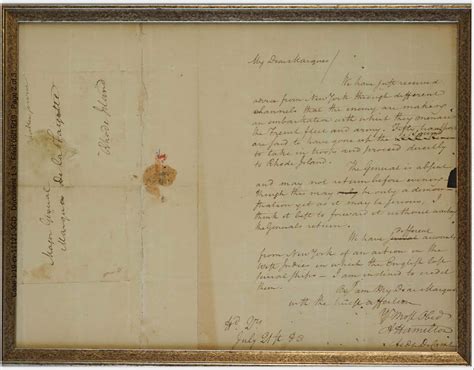 My Dear Marquis
We have just received
advice from New York through different
channels that the enemy are making
an embarkation with which they menace
the French fleet and army. Fifty transports
are said to have gone up the
to take in troops and proceed directly
to Rhode Island.
The General is absent
and may not return before evening
though this may be only a demon
stration yet as it may be serious, I
think it best to forward it without waiting
the Generals return.
We have different accounts
from New York of an action in the
West Indies in which the English lost
several ships - I am inclined to credit
them.
I am My Dear Marquis
with the truest affection
Yr Most Obed
A Hamilton
Aide De Camp
Hd Qrs
July 21st 80
Major General
Marquis De la Fayette
Rhode Island